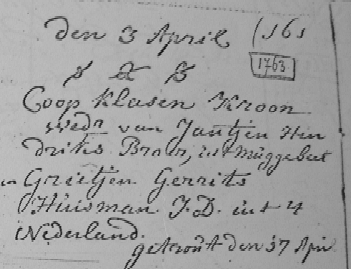 den 3 April (161
1763
Coop Klasen Kroon
wedr van Jantjen Hin
driks Brour, int Muggebeet
en Grietjen Gerrits
Huisman J.D. int 4
Nederland.
getrout den 17 April